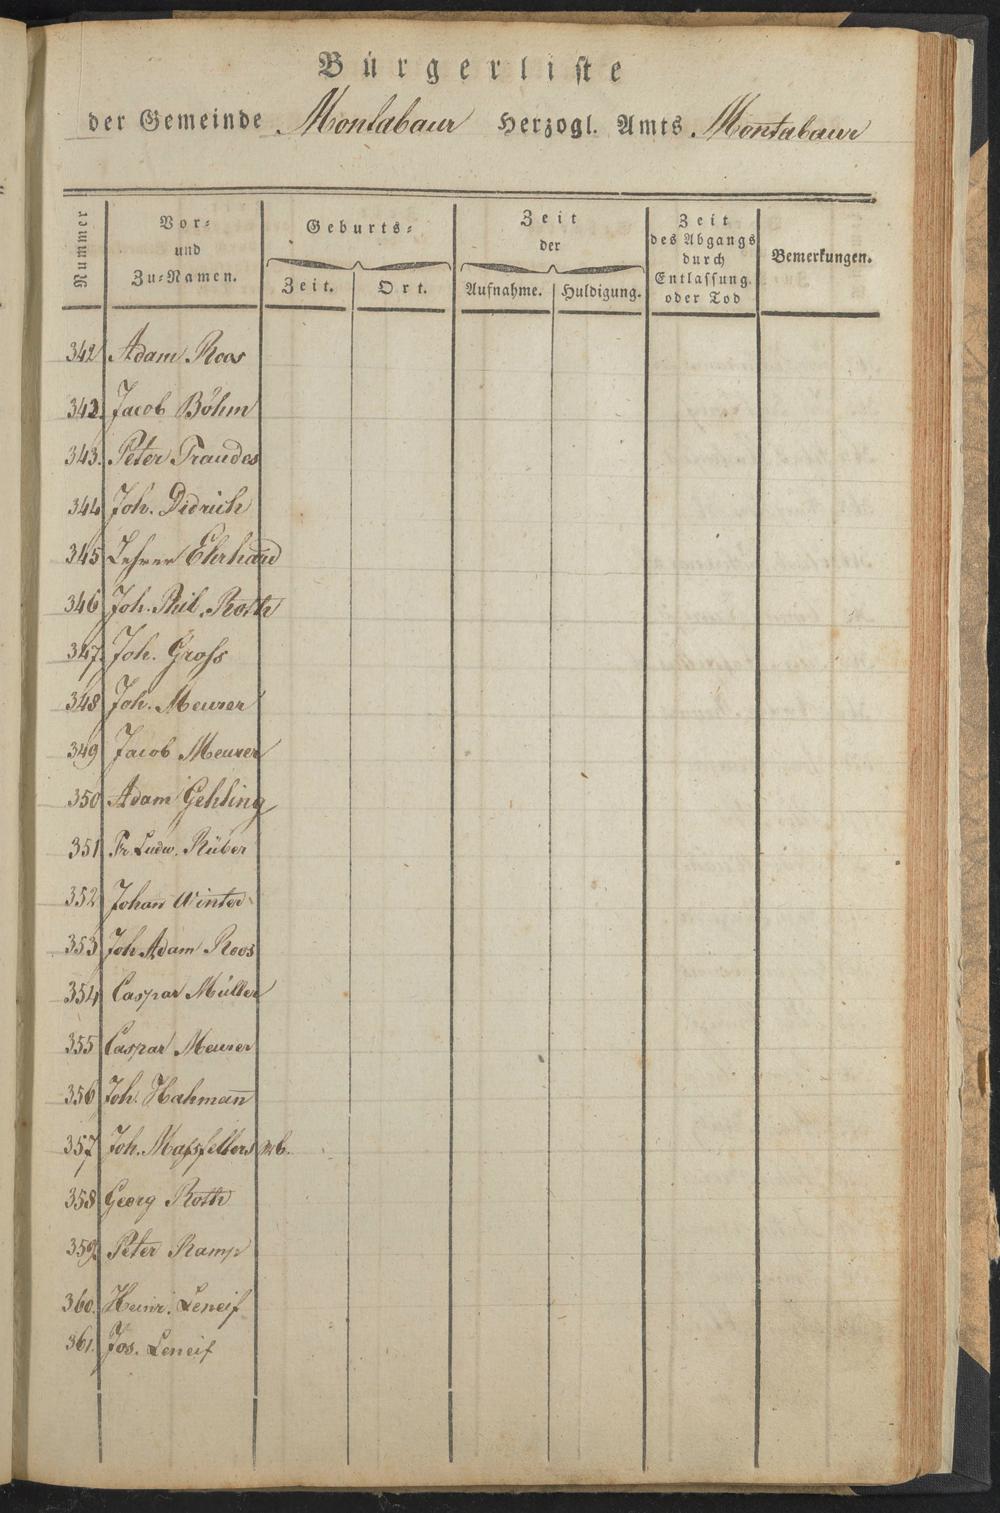 Bürgerliste
der Gemeinde Montabaur Herzogl. Amts Montabaur
Nummer
Vor-
und
Zu-Namen.
Geburts-
Zeit.
Ort.
Zeit
der
Aufnahme.
Huldigung.
Zeit
des Abgangs
durch
Entlassung
oder Tod
Bemerkungen.
342 Adam Roos
342. Jacob Böhm
343. Peter Traudes
344 Joh. Didrich
345 Lehrer Ehrhard
346 Joh. Phil. Roth
347. Joh. Groß
348 Joh. Meurer
349 Jacob Meurer
350 Adam Gehling
351 Fr. Ludw. Rüber
352 Johan̅ Winter
353 Joh Adam Roos
354 Caspar Müller
355 Caspar Meurer
356 Joh. Hahman̅
357 Joh. Maßfellers
358 Georg Roth
359. Peter Ramp
360. Heinr. Leneif
361. Jos. Leneif